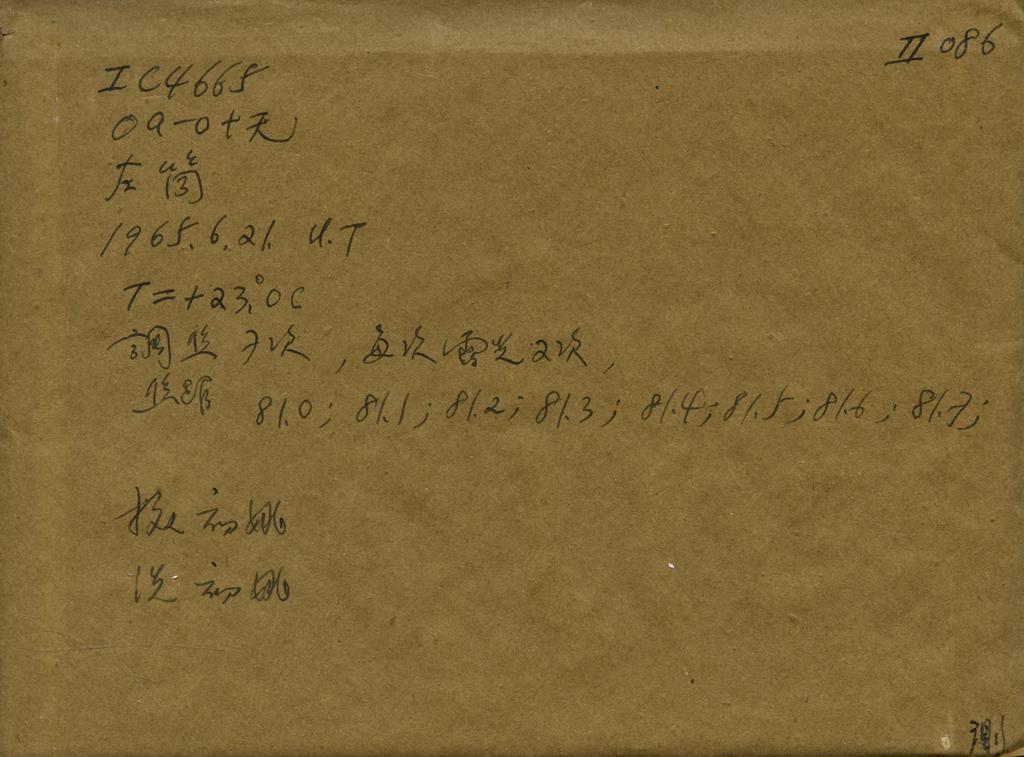 II 086
IC4665
0a-0+天
左筒
1965.6.21. U.T
T=+23.°0C
調焦 7次 , 每次露光2次,
焦距 81.0; 81.1; 81.2; 81.3; 81.4; 81.5; 81.6; 81.7;
初姚
洗 初姚
測